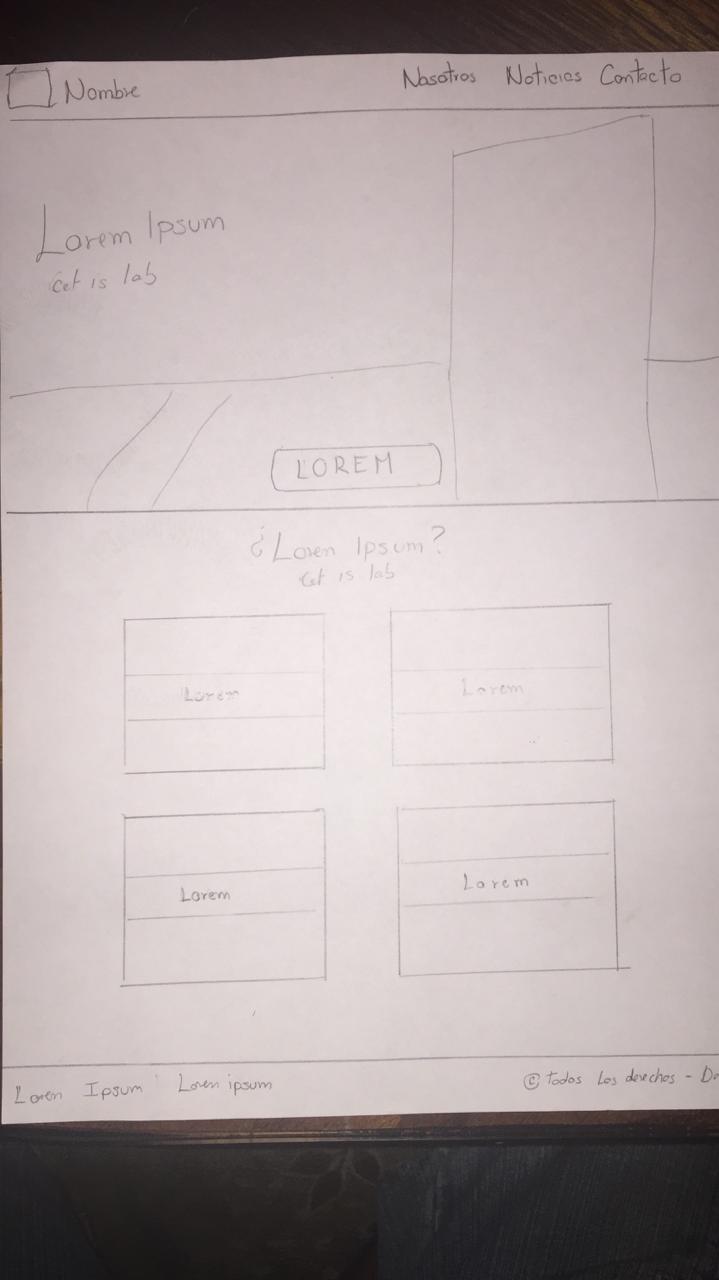 Nombre Nosotros Noticias Contacto
Lorem Ipsum
cet is lab
LOREM
¿Loren Ipsum?
cet is lab
Lorem Lorem
Lorem Lorem
Loren Ipsum Loren ipsum © todos los derechos -